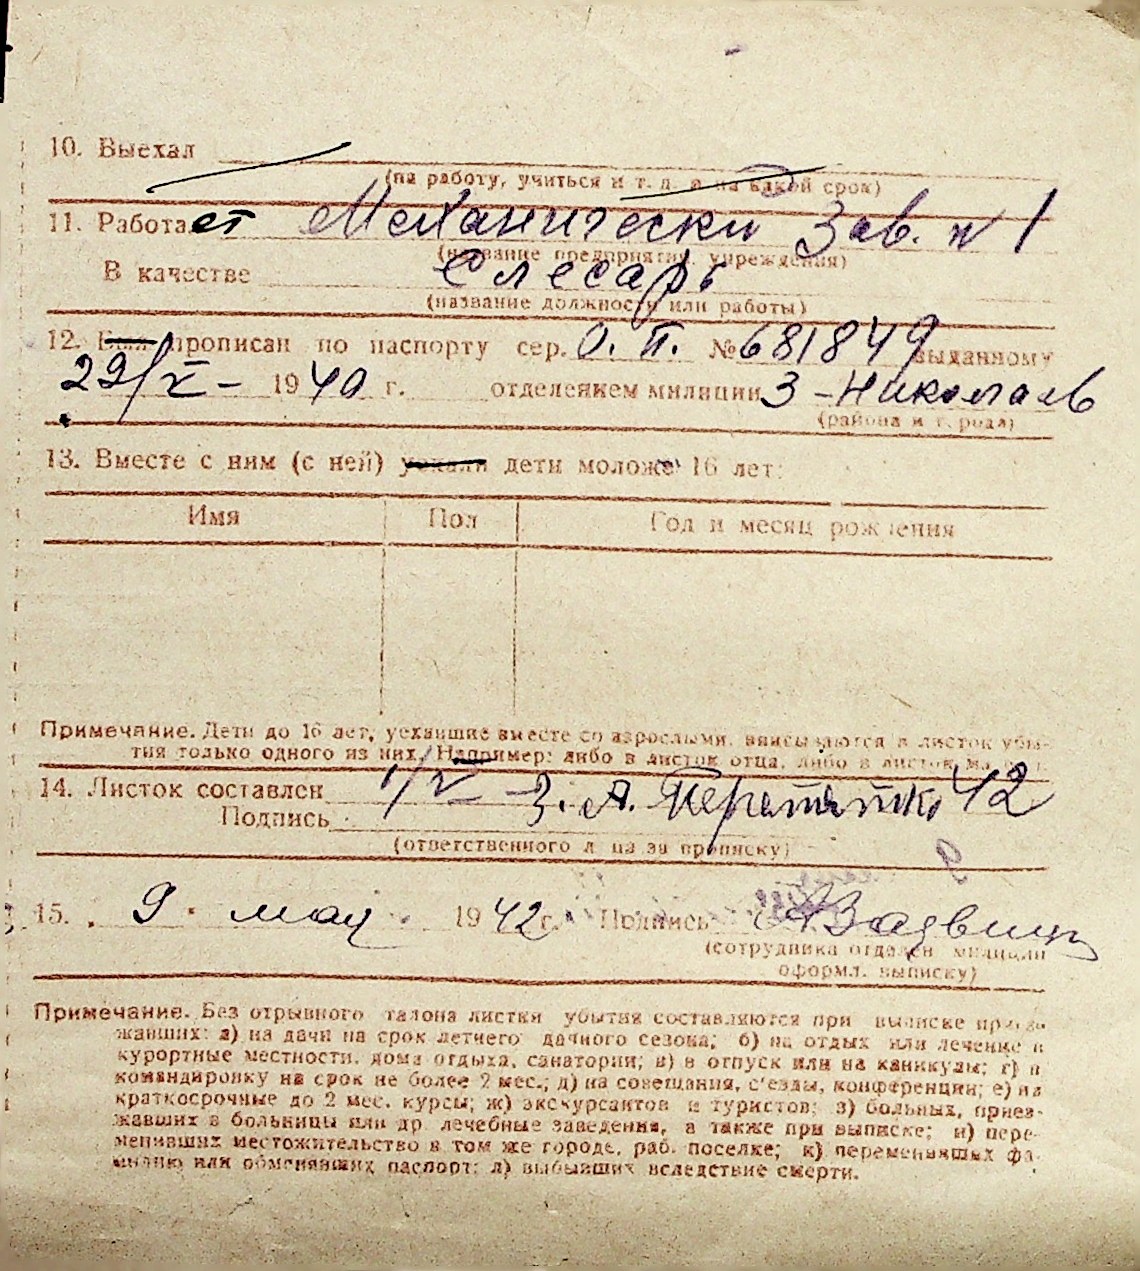 10. Выехал
(на работу, учиться и т. д. и на какой срок)
11. Работает Механически Зав. № 1
(название предприятия, учреждения)
В качестве Слесарь
(название должности или работы)
12. Был прописан по паспорту сер. О. П. № 681849 выданному
29/V – 1940 г. отделением милиции 3 – Николаев
(района и города)
13. Вместе с ним (с ней) уехали дети моложе 16 лет:
Имя Пол Год и месяц рождения
Примечание. Дети до 16 лет, уехавшие вместе со взрослыми, вписываются в листок убы-
тия только одного из них. Например: либо в листок отца, либо в листок
14. Листок составлен 1/V 42
Подпись З. А.
(ответственного лица за прописку)
15. 9. мая 1942 г. Подпись
(сотрудника отделен. милиции
оформл. выписку)
Примечание. Без отрывного талона листки убытия составляются при выписке приез-
жавших: а) на дачи на срок летнего дачного сезона; б) на отдых или лечение в
курортные местности, дома отдыха, санатории; в) в отпуск или на каникулы; г) в
командировку на срок не более 2 мес.; д) на совещания, с'езды, конференции; е) на
краткосрочные до 2 мес. курсы; ж) экскурсантов и туристов; з) больных, приез-
жавших в больницы или др. лечебные заведения, а также при выписке; и) пере-
менивших местожительство в том же городе, раб. поселке; к) переменивших фа-
милию или обменявших паспорт; л) выбывших вследствие смерти.